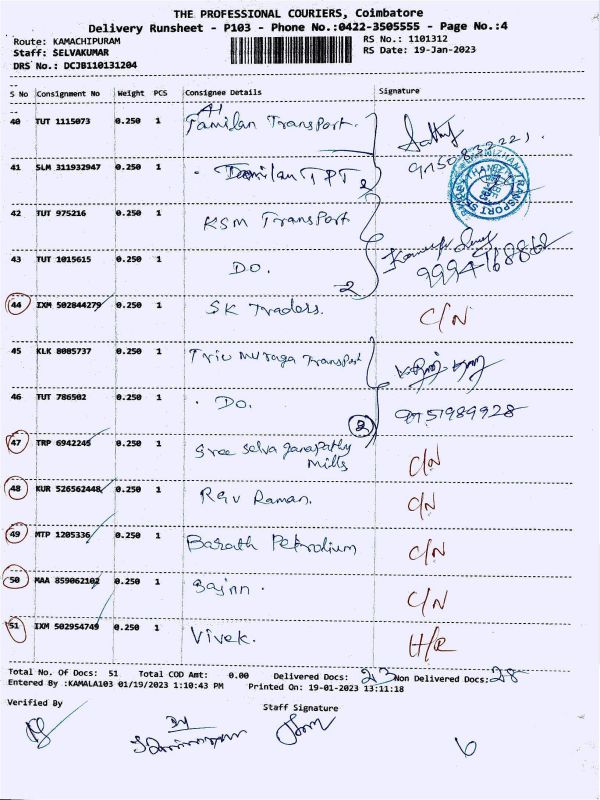 THE PROFESSIONAL COURIERS, Coimbatore
Delivery Runsheet - P103 - Phone No.:0422-3505555 - Page No.:4
Route: KAMACHIPURAM RS No.: 1101312
Staff: SELVAKUMAR RS Date: 19-Jan-2023
DRS No.: DCJB110131204
S No Consignment No Weight PCS Consignee Details Signature
40 TUT 1115073 0.250 1 Tamilan Transport.
41 SLM 311932947 0.250 1 Tamilan TPT 2
42 TUT 975216 0.250 1 KSM Transport
43 TUT 1015615 0.250 1 Do. 2 9994768862
44 IXM 502844279 0.250 1 SK Traders. C/N
45 KLK 8005737 0.250 1 Triv Muraga Transport
46 TUT 786502 0.250 1 Do. 2 9751989928
47 TRP 6942245 0.250 1 Sree Selva Ganapathy
Mills C/N
48 KUR 526562448 0.250 1 Raman. C/N
49 MTP 1205336 0.250 1 Barath Petrolium C/N
50 MAA 859062102 0.250 1 C/N
51 IXM 502954749 0.250 1 Vivek. H/R
Total No. Of Docs: 51 Total COD Amt: 0.00 Delivered Docs: 23 Non Delivered Docs: 28
Entered By :KAMALA103 01/19/2023 1:10:43 PM Printed On: 19-01-2023 13:11:18
Verified By Staff Signature